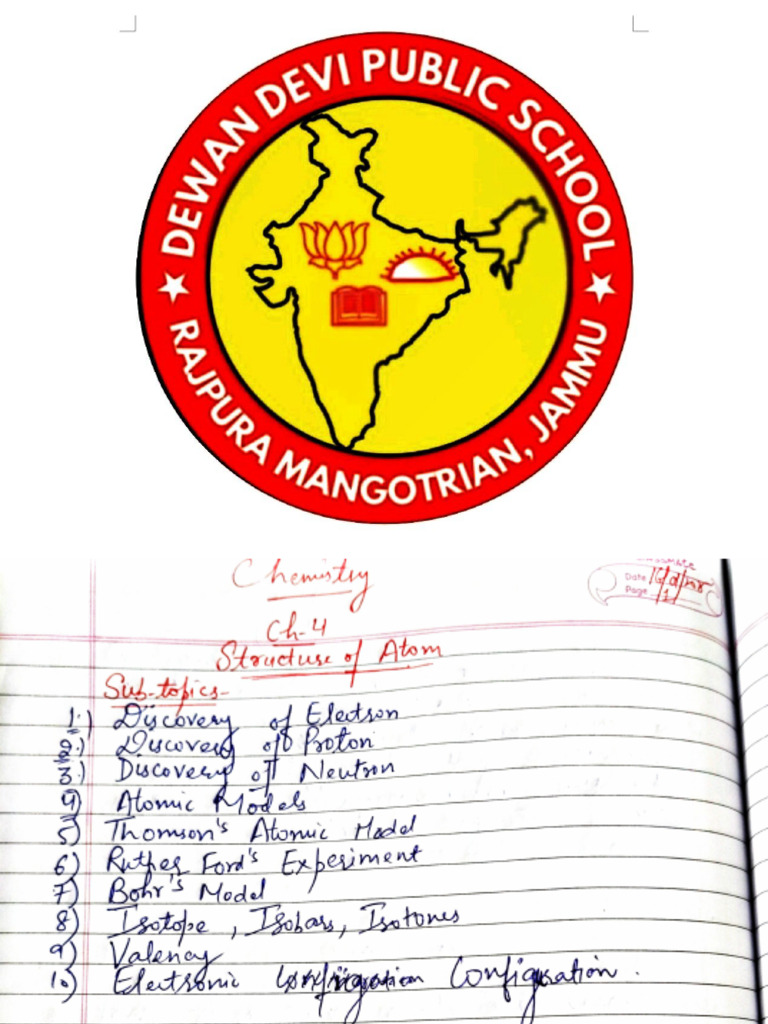 DEWAN DEVI PUBLIC SCHOOL
RAJPURA MANGOTRIAN, JAMMU
Chemistry
Date
Page 1
Ch-4
Structure of Atom
Sub-topics-
1.) Discovery of Electron
2.) Discovery of Proton
3.) Discovery of Neutron
4) Atomic Models
5) Thomson's Atomic Model
6) Ruther Ford's Experiment
7) Bohr's Model
8) Isotope, Isobars, Isotones
9) Valency
10) Electronic Configuration.